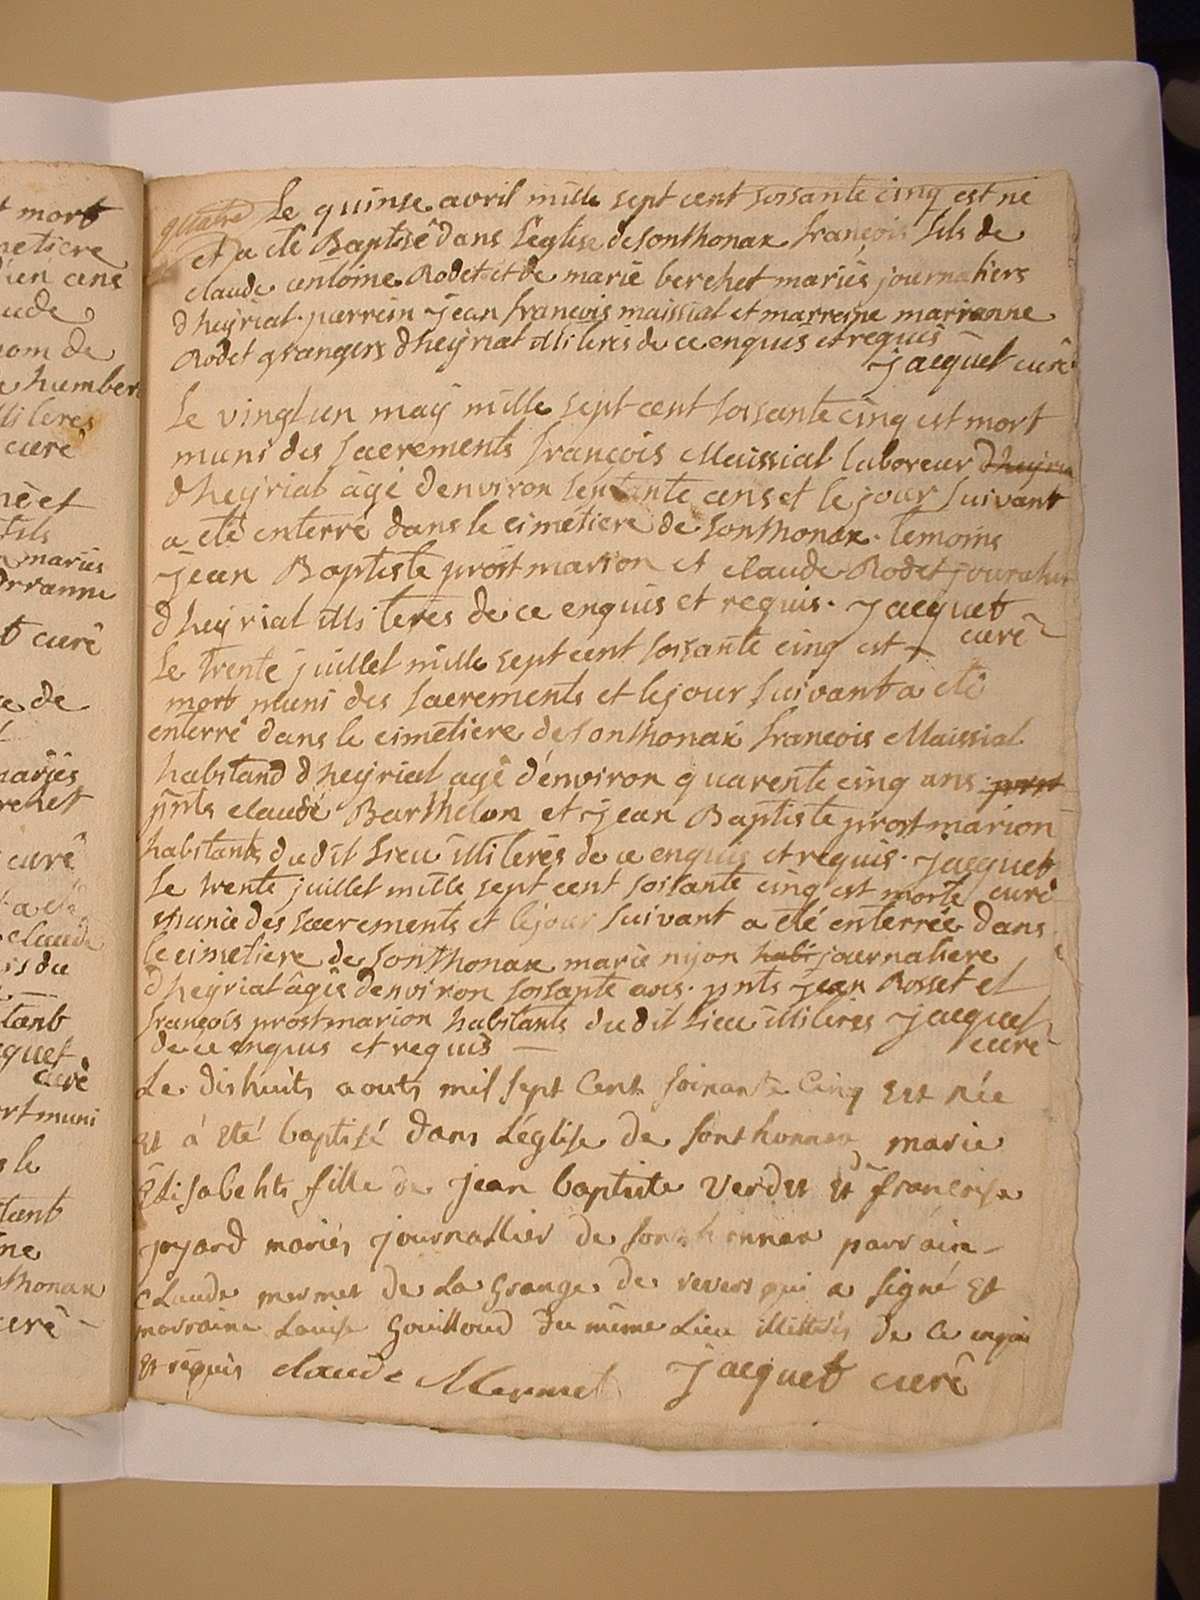 t mort
metiere
d'un cens
ude
nom de
e humber
illiteres
curé
né et
fils
maries
t curé
e de
mariés
rchet
curé
a été
claude
is du
tant
cquet
curé
ort muni
s le
tant
ne
thonax
curé
quatre Le quinse avril mille sept cent soisante cinq est né
et a été Baptisé dans l'eglise de sonthonax françois fils de
claude antoine Rodet et de marie berchet mariés journaliers
d heÿriat. parrein jean françois maissiat et marreine marianne
Rodet grangers d heÿriat illiterés de ce enquis et requis
jacquet curé
Le vingt un maÿ mille sept cent soisante cinq est mort
muni des sacrements françois Maissiat laboreur d heÿria
d heÿriat âgé d'environ septante ans et le jour suivant
a été enterré dans le cimetiere de sonthonax. temoins
jean Baptiste prost marion et claude Rodet journalier
d heÿriat illiterés de ce enquis et requis. jacquet
curé
Le trente juillet mille sept cent soisante cinq est
mort muni des sacrements et le jour suivant a été
enterré dans le cimetiere de sonthonax françois Maissiat
habitand d heÿriat agé d'environ quarente cinq ans prst
pnts claude Barthelon et jean Baptiste prost marion
habitants dudit Lieu illiterés de ce enquis et requis. jacquet
curé
Le trente juillet mille sept cent soisante cinq est morte
munie des sacrements et le jour suivant a été enterrée dans
le cimetiere de sonthonax marie nyon habi journaliere
d heÿriat âgée d'environ soisante ans. pnts jean Rosset et
françois prost marion habitants dudit Lieu illiteres jacquet
de ce enquis et requis curé
Le dishuits aouts mil sept Cent soixante Cinq Est née
Et á Eté baptisé dans L'église de sonthonnax marie
Elisabehts fille de jean baptiste Verdet Et françoise
joyard mariés journallier de sonthonnax parraine
claude mermet de La Grange de revers qui a signé Et
marraine Louise Gouilloud du même Lieu illitterés de ce enquis
Et requis claude Mermet jacquet curé